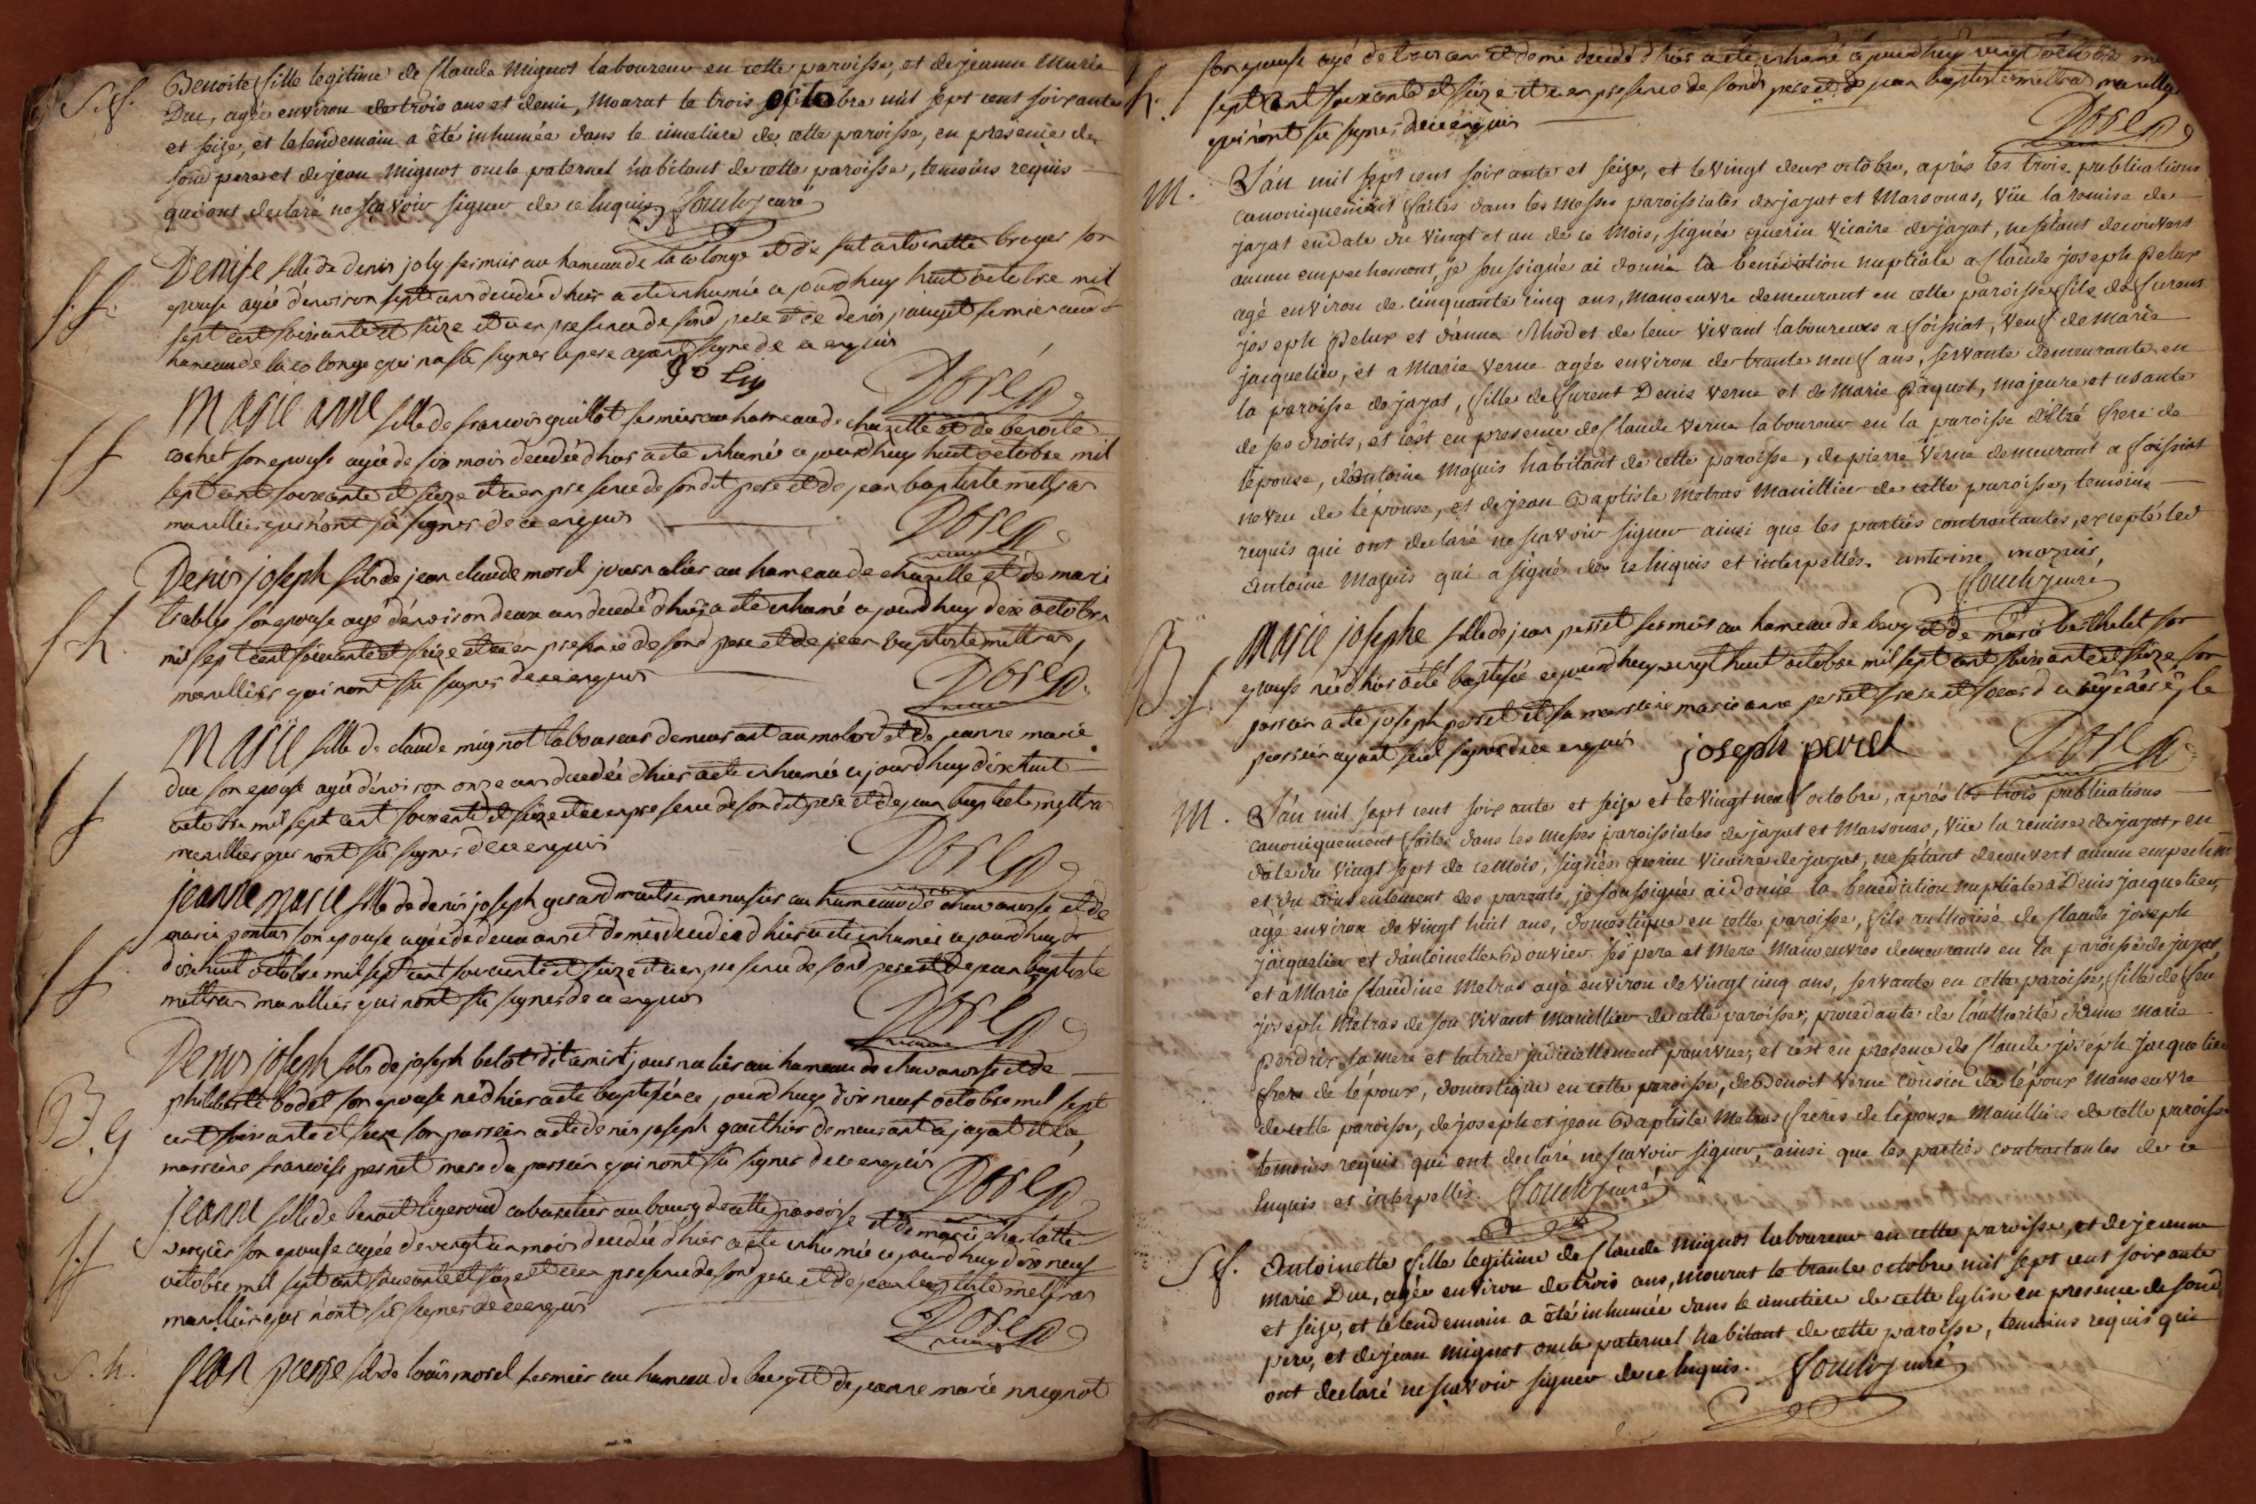 S. f. Benoite fille legitime de Claude Mignot laboureur en cette paroisse, et de jeanne Marie
Duc, agée environ de trois ans et demi, Mourut le trois octobre mil sept cent soixante
et seize, et le lendemain a été inhumée dans le cimetiere de cette paroisse, en presence de
sond pere et de jean Mignot oncle paternel habitant de cette paroisse, temoins requis
qui ont declaré ne scavoir signer de ce Enquis curé
S. f. Denise fille de denis joly fermier au hameau de la colonge et de fut antoinette broyer son
epouse agée d'environ sept ans decedée d'hier a eté inhumée ce jourdhuy huit octobre mil
sept cent soixante et seize et ce en presence de sond pere et de denis fermier audt
hameau de la colonge qui na scu signer le pere ayant signé de ce enquis
Jo Liy
Dorez
S f Marie anne fille de francois guillot fermier au hameau de chazelle et de benoite
cochet son epouse agée de six mois decedée d'hier a eté inhumée ce jourdhuy huit octobre mil
sept cent soixante et seize et ce en presence de sondit pere et de jean baptiste mettras
marullier qui nont scu signer de ce enquis
Dorez
S. h. Denis joseph fils de jean claude morel journalier au hameau de chazelle et de marie
son epouse agé d'environ deux ans decedé d'hier a eté inhumé ce jourdhuy dix octobre
mil sept cent soixante et seize et ce en presence de sond pere et de jean baptiste mettras,
marullier qui nont scu signer de ce enquis
Dorez
S f Marie fille de claude mignot laboureur demeurant au molard et de jeanne marie
duc son epouse agée d'environ onze ans decedée d'hier a eté inhumée ce jourdhuy dix huit
octobre mil sept cent soixante et seize et ce en presence de sondit pere et de jean baptiste mettra
marullier qui nont scu signer de ce enquis
Dorez
S f jeanne marie fille de denis joseph gerard maitre menusier au hameau de chavanosse et de
marie son epouse agée de deux ans et demi decedée d'hier a eté inhumée ce jourdhuy
dixhuit octobre mil sept cent soixante et seize et ce en presence de sond pere et de jean baptiste
mettras marullier qui nont scu signer de ce enquis
Dorez
B. g Denis joseph fils de joseph belot dit journalier au hameau de chavanosse et de
philiberte bodet son epouse né d'hier a eté baptisé ce jourdhuy dix neuf octobre mil sept
cent soixante et seize son parrein a eté denis joseph gauthier demeurant a jayat et la
marreine francoise pernet mere du parrein qui nont scu signer de ce enquis
Dorez
S. f jeanne fille de benoit ligeroud cabaretier au bourg de cette paroisse et de marie charlotte
vergier son epouse agée de vingt un mois decedée d'hier a eté inhumée ce jourdhuy dix neuf
octobre mil sept cent soixante et seize et ce en presence de sond pere et de jean baptiste mettras
marullier qui nont scu signer de ce enquis
Dorez
S. h. jean pierre fils de louis morel fermier au hameau de et de jeanne marie mignot
h. son epouse agé de trois ans et demi decedé d'hier a eté inhumé ce jourdhuy vingt octobre mil
sept cent soixante et seize et ce en presence de sond pere et de jean baptiste mettras marullier
qui nont scu signer de ce enquis
Dorez
M. L'an mil sept cent soixante et seize, et le vingt deux octobre, après les trois publications
canoniquement faites dans les Messes paroissiales de jayat et Marsonas, vüe la remise de
jayat en date du vingt et un de ce Mois, signée guerin Vicaire de jayat, ne s'étant decouvert
aucun empechement, je soussigné ai donné la benediction nuptiale a Claude joseph Pelux
agé environ de cinquante cinq ans, manoeuvre demeurant en cette paroisse fils de furent
joseph Pelux et d'anne Rhodet de leur vivant laboureurs a foissiat, Veuf de Marie
jacquelin, et a Marie Verne agée environ de trante neuf ans, servante demeurante en
la paroisse de jayat, fille de furent Denis Verne et de Marie Paquot, majeure et usante
de ses droits, et c'est en presence de Claude Verne laboureur en la paroisse d'étré frere de
l'épouse, d'antoine Maguis habitant de cette paroisse, de pierre Verne demeurant a foissiat
neveu de l'épouse, et de jean Baptiste Metras Marillier de cette paroisse, temoins
requis qui ont declaré ne scavoir signer ainsi que les parties contractantes, excepté led
antoine Maguis qui a signé de ce Enquis et interpellés. antoine maguis
curé
B. f. Marie josephe fille de jean perret fermier au hameau de et de marie berthelet son
epouse née d'hier a eté baptisée ce jourdhuy vingt huit octobre mil sept cent soixante et seize son
parrein a eté joseph perret et sa marreine marie anne perret frere et soeur de le
parrein ayant seul signé de ce enquis
joseph perret
Dorez
M. L'an mil sept cent soixante et seize et le vingt neuf octobre, après les trois publications
canoniquement faites dans les messes paroissiales de jayat et Marsonas, vüe la remise de jayat, en
date du vingt sept de ce Mois, signée guerin Vicaire de jayat, ne s'étant decouvert aucun empechemt
et du consentement des parents, je soussigné ai donné la benediction nuptiale a Denis jacquelin,
agé environ de vingt huit ans, domestique en cette paroisse, fils authorisé de Claude joseph
jacquelin et d'antoinette Bouvier ses pere et Mere Manoeuvres demeurants en la paroisse de jayat,
et a Marie Claudine Metras agé environ de vingt cinq ans, servante en cette paroisse, fille de feu
joseph Metras de son vivant Marillier de cette paroisse, procedante de l'authorité d'anne Marie
Perdrix sa mere et tutrice judiciellement pourvue, et c'est en presence de Claude joseph jacquelin
frere de l'époux, domestique en cette paroisse, de Benoit Verne cousin de l'époux Manoeuvre
de cette paroisse, de joseph et jean Baptiste Metras freres de l'épouse Marilliers de cette paroisse
temoins requis qui ont declaré ne scavoir signer, ainsi que les parties contractantes de ce
Enquis et interpellés. curé
S f. Antoinette fille legitime de Claude Mignot laboureur en cette paroisse, et de jeanne
Marie Duc, agée environ de trois ans, mourut le trante octobre mil sept cent soixante
et seize, et le lendemain a été inhumée dans le cimetiere de cette Eglise en presence de sond
pere, et de jean Mignot oncle paternel habitant de cette paroisse, temoins requis qui
ont declaré ne scavoir signer de ce Enquis. curé